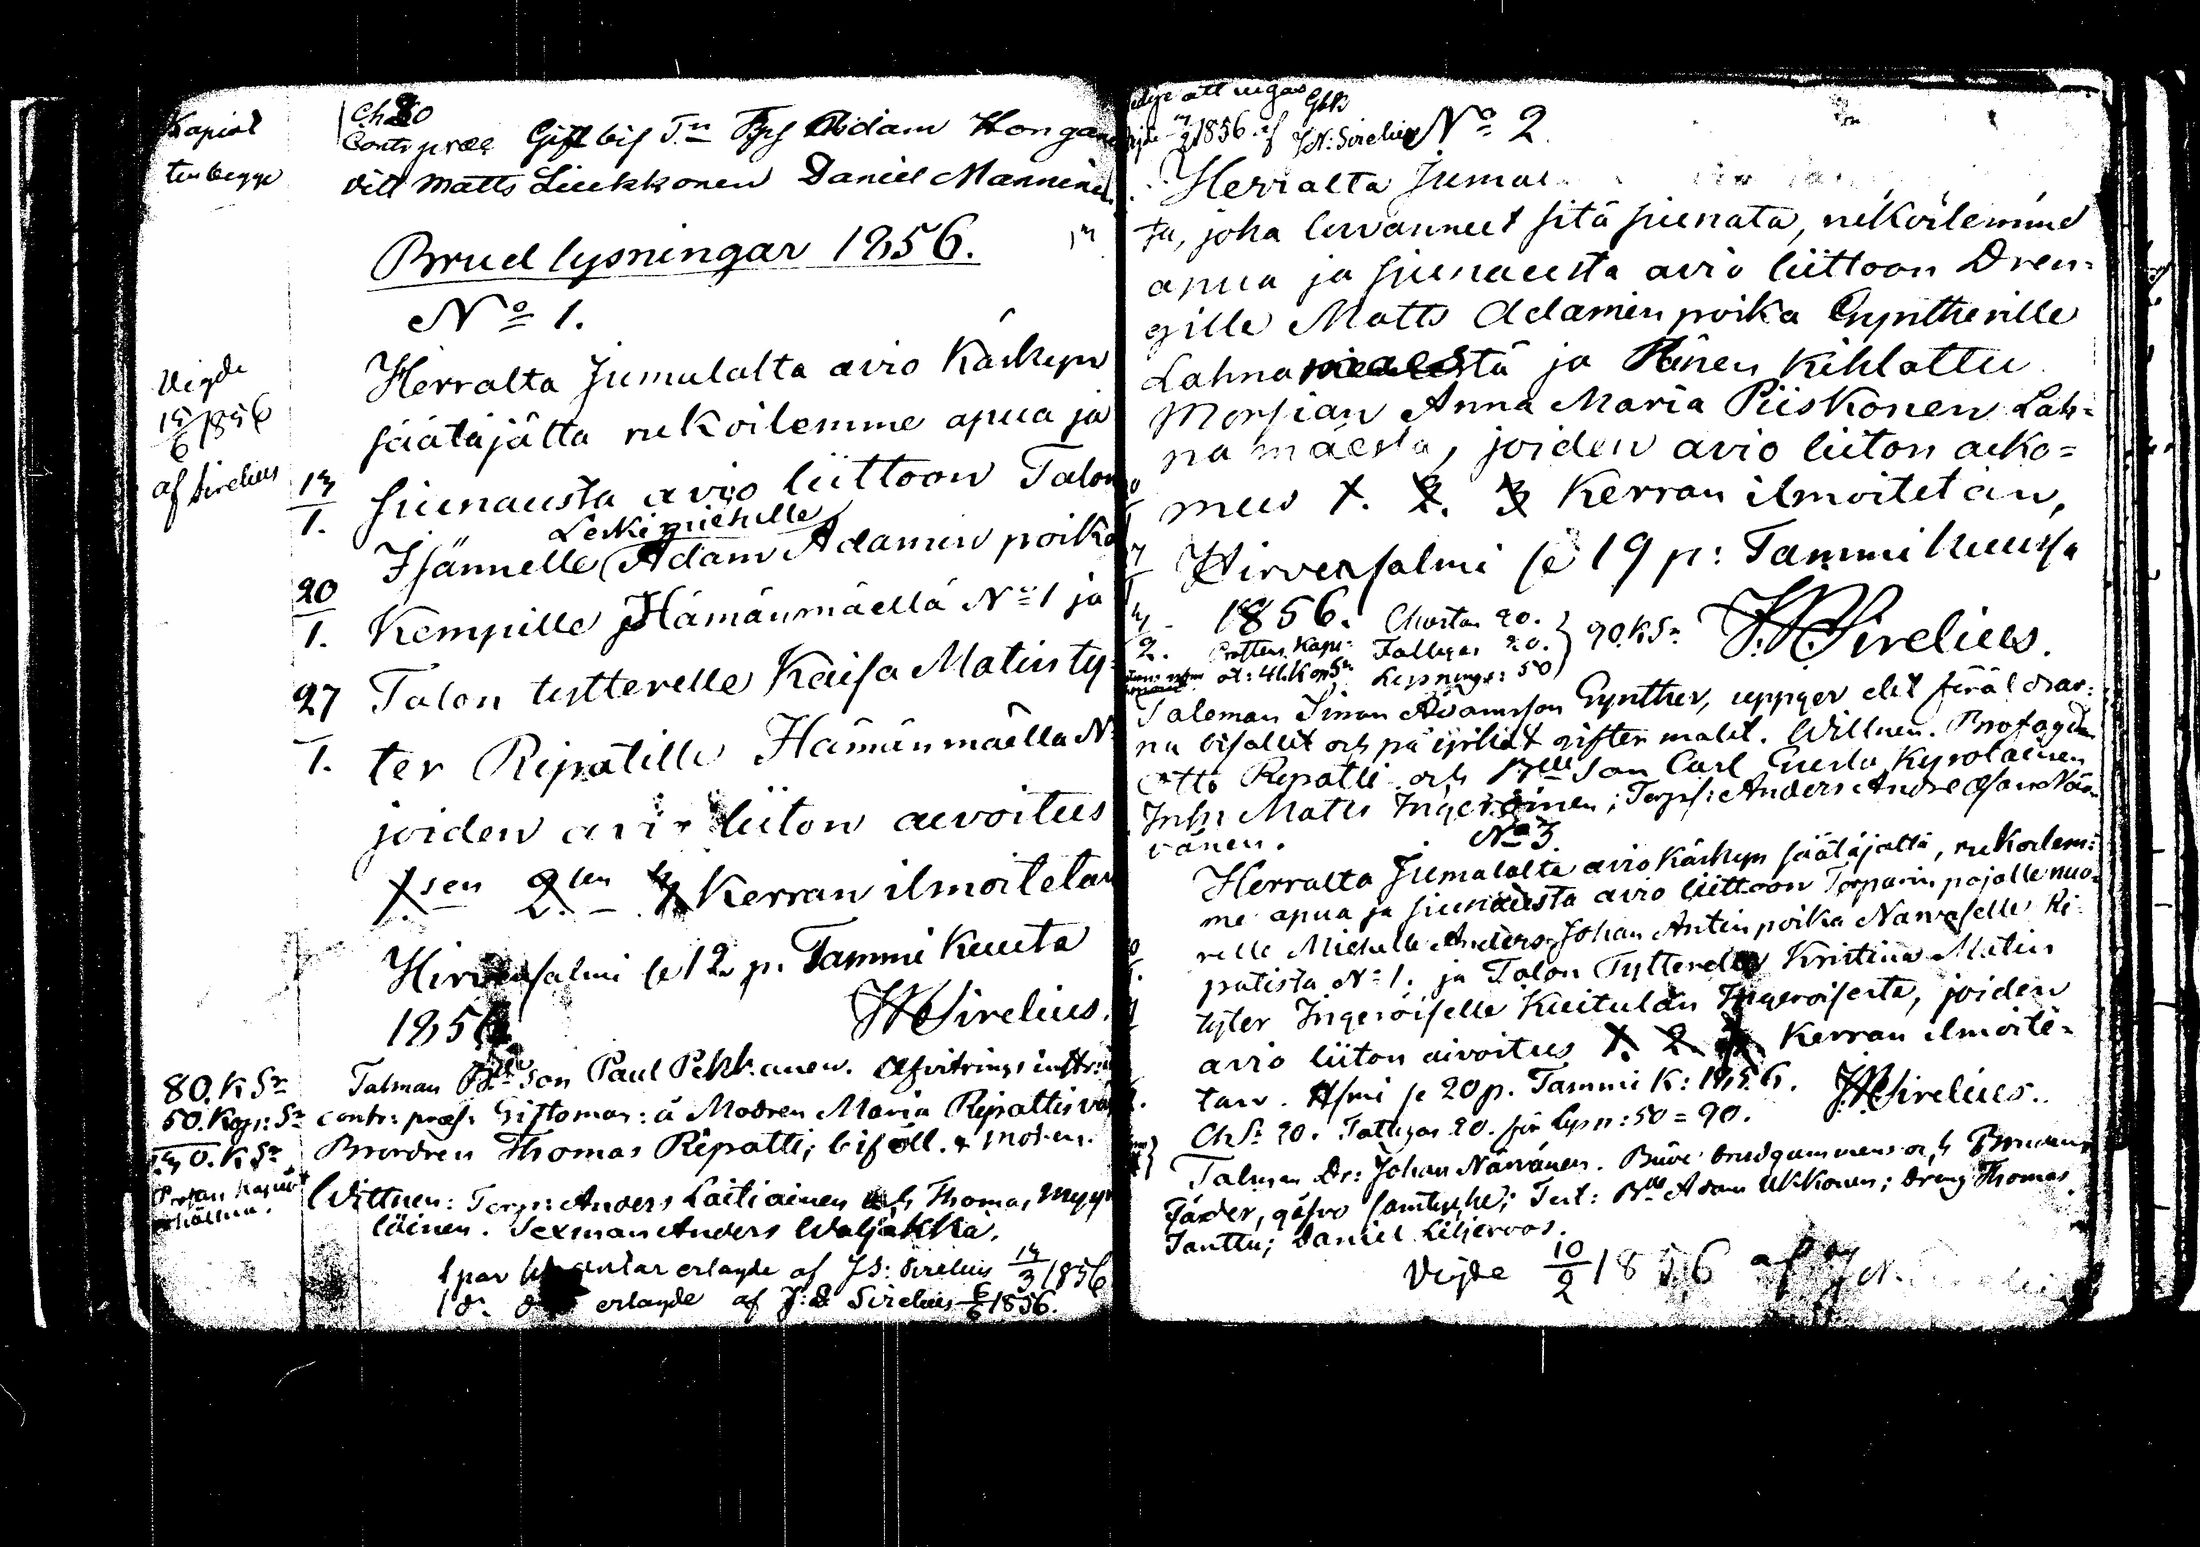 Kapiol
ten begge
Contr: præs Gift bif T:n Adam Honga
vitt Matts Liukkonen Daniel Mannine
Brudlysningar 1856.
No 1.
Herralta Jumalalta avio käskyn
säätäjältä rukoilemme apua ja
siunausta avio liittoon Talon
Leskimiehelle
Isännelle Adam Adamin poika
Kempille Hämänmäellä No 1 ja
Talon tytterelle Kaisa Matin ty-
ter Ripatille Hämänmäellä N
joiden avio liiton aivoitus
1.sen 2.sen 3 Kerran ilmoitetan
Hirvensalmi se 12 p. Tammi Kuuta
1856
Sirelius.
Vigde
15/6 1856
af Sirelius
13/1.
20/1.
27/1.
80. K Sr
50. Kop: Sr
Talman son Paul Pekkanen. Afvitrings instr:
contr: præs: Giftoman: å Modren Maria Ripatti
Brordren Thomas Ripatti; biföll.
Vittnen: Torp: Anders Laitiainen och Thomas Myyry
läinen. Sexman Anders Waljakka.
1 par erlagde af Sirelius 13/3 1856
1 d:o erlagde af Sirelius 6/6 1856.
1856 af Sirelius No 2
Herralta Jumal
ta, joka luvannut sitä siunata, rukoilemme
apua ja siunausta avio liittoon Dren-
gille Matts Adamin poika Gyntherille
Lahnamäestä ja Hänen kihlattu
Morsian Anna Maria Piiskonen Lah-
namäestä, joiden avio liiton aiko-
mus 1. 2. 3 Kerran ilmoitetan,
Hirvensalmi se 19 p: Tammi kuussa
1856. Charta 20.
Fattigas 20. } 90. K Sr Sirelius.
Lysninge: 50
Taleman Simon Adamsson Gynther, uppger det föräldrar-
na bifallit och på giftermålet. Wittnen.
Otto Ripatti och Son Carl Gusta Kyrolainen
Inh: Matts Ingeroinen; Torps: Anders Andreasson När-
vänen.
No 3.
Herralta Jumalalta avio käskyn säätäjältä, rukoilem-
me apua ja siunausta avio liittoon Torparin pojalle nuo-
relle Miehelle Anders Johan Antin poika Narvaselle Ri-
patista No 1. ja Talon Tytterelle Kristina Matin
tyter Ingeroiselle Kuitulan Ingeroisesta, joiden
avio liiton aivoitus 1. 2. 3. Kerran ilmoite-
tan. Hsmi se 20 p. Tammi K: 1856. Sirelius.
Ch Sr 20. Fattigas 20. för Lysn: 50 = 90.
Talman Dr: Johan Närvänen. Både brudgummens och Brudens
Fäder, gåfvo samtycke; Test: Adam Ukkonen; Dreng Thomas
Tanttu; Daniel Liljeroos.
Vigde 10/2 1856 af